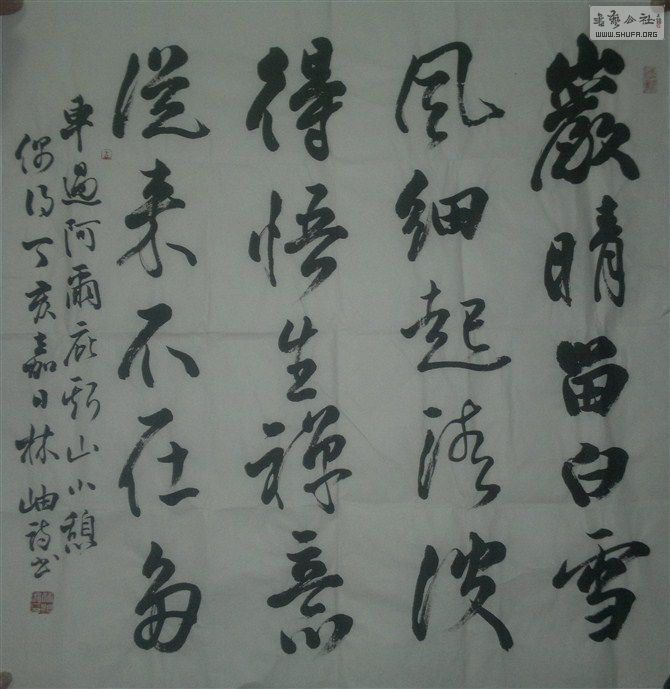 書藝公社
WWW.SHUFA.ORG
巖晴畄白雪
風細起波
得悟生禪意
從来不在多
車過阿爾庇斯山小憩
偶得丁亥嘉日林岫詩书